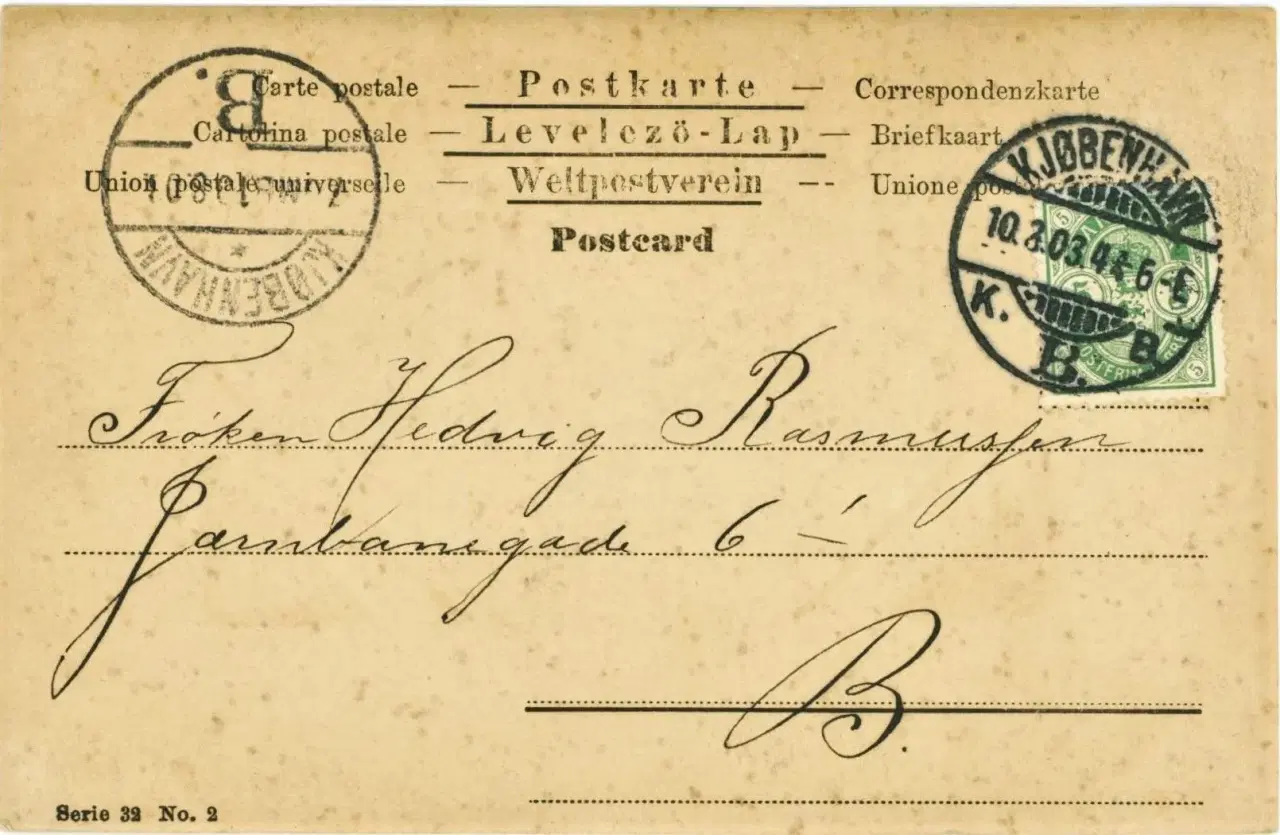 Carte postale — Postkarte — Correspondenzkarte
Cartolina postale — Levelezö-Lap — Briefkaart
Union postale universelle — Weltpostverein — Unione
Postcard
B.
KJØBENHAVN
KJØBENHAVN
10.3.03. 4-6 E
K. B.
B.
5 5
5
Frøken Hedvig Rasmussen
Jærnbanegade 6 1
B.
Serie 32 No. 2